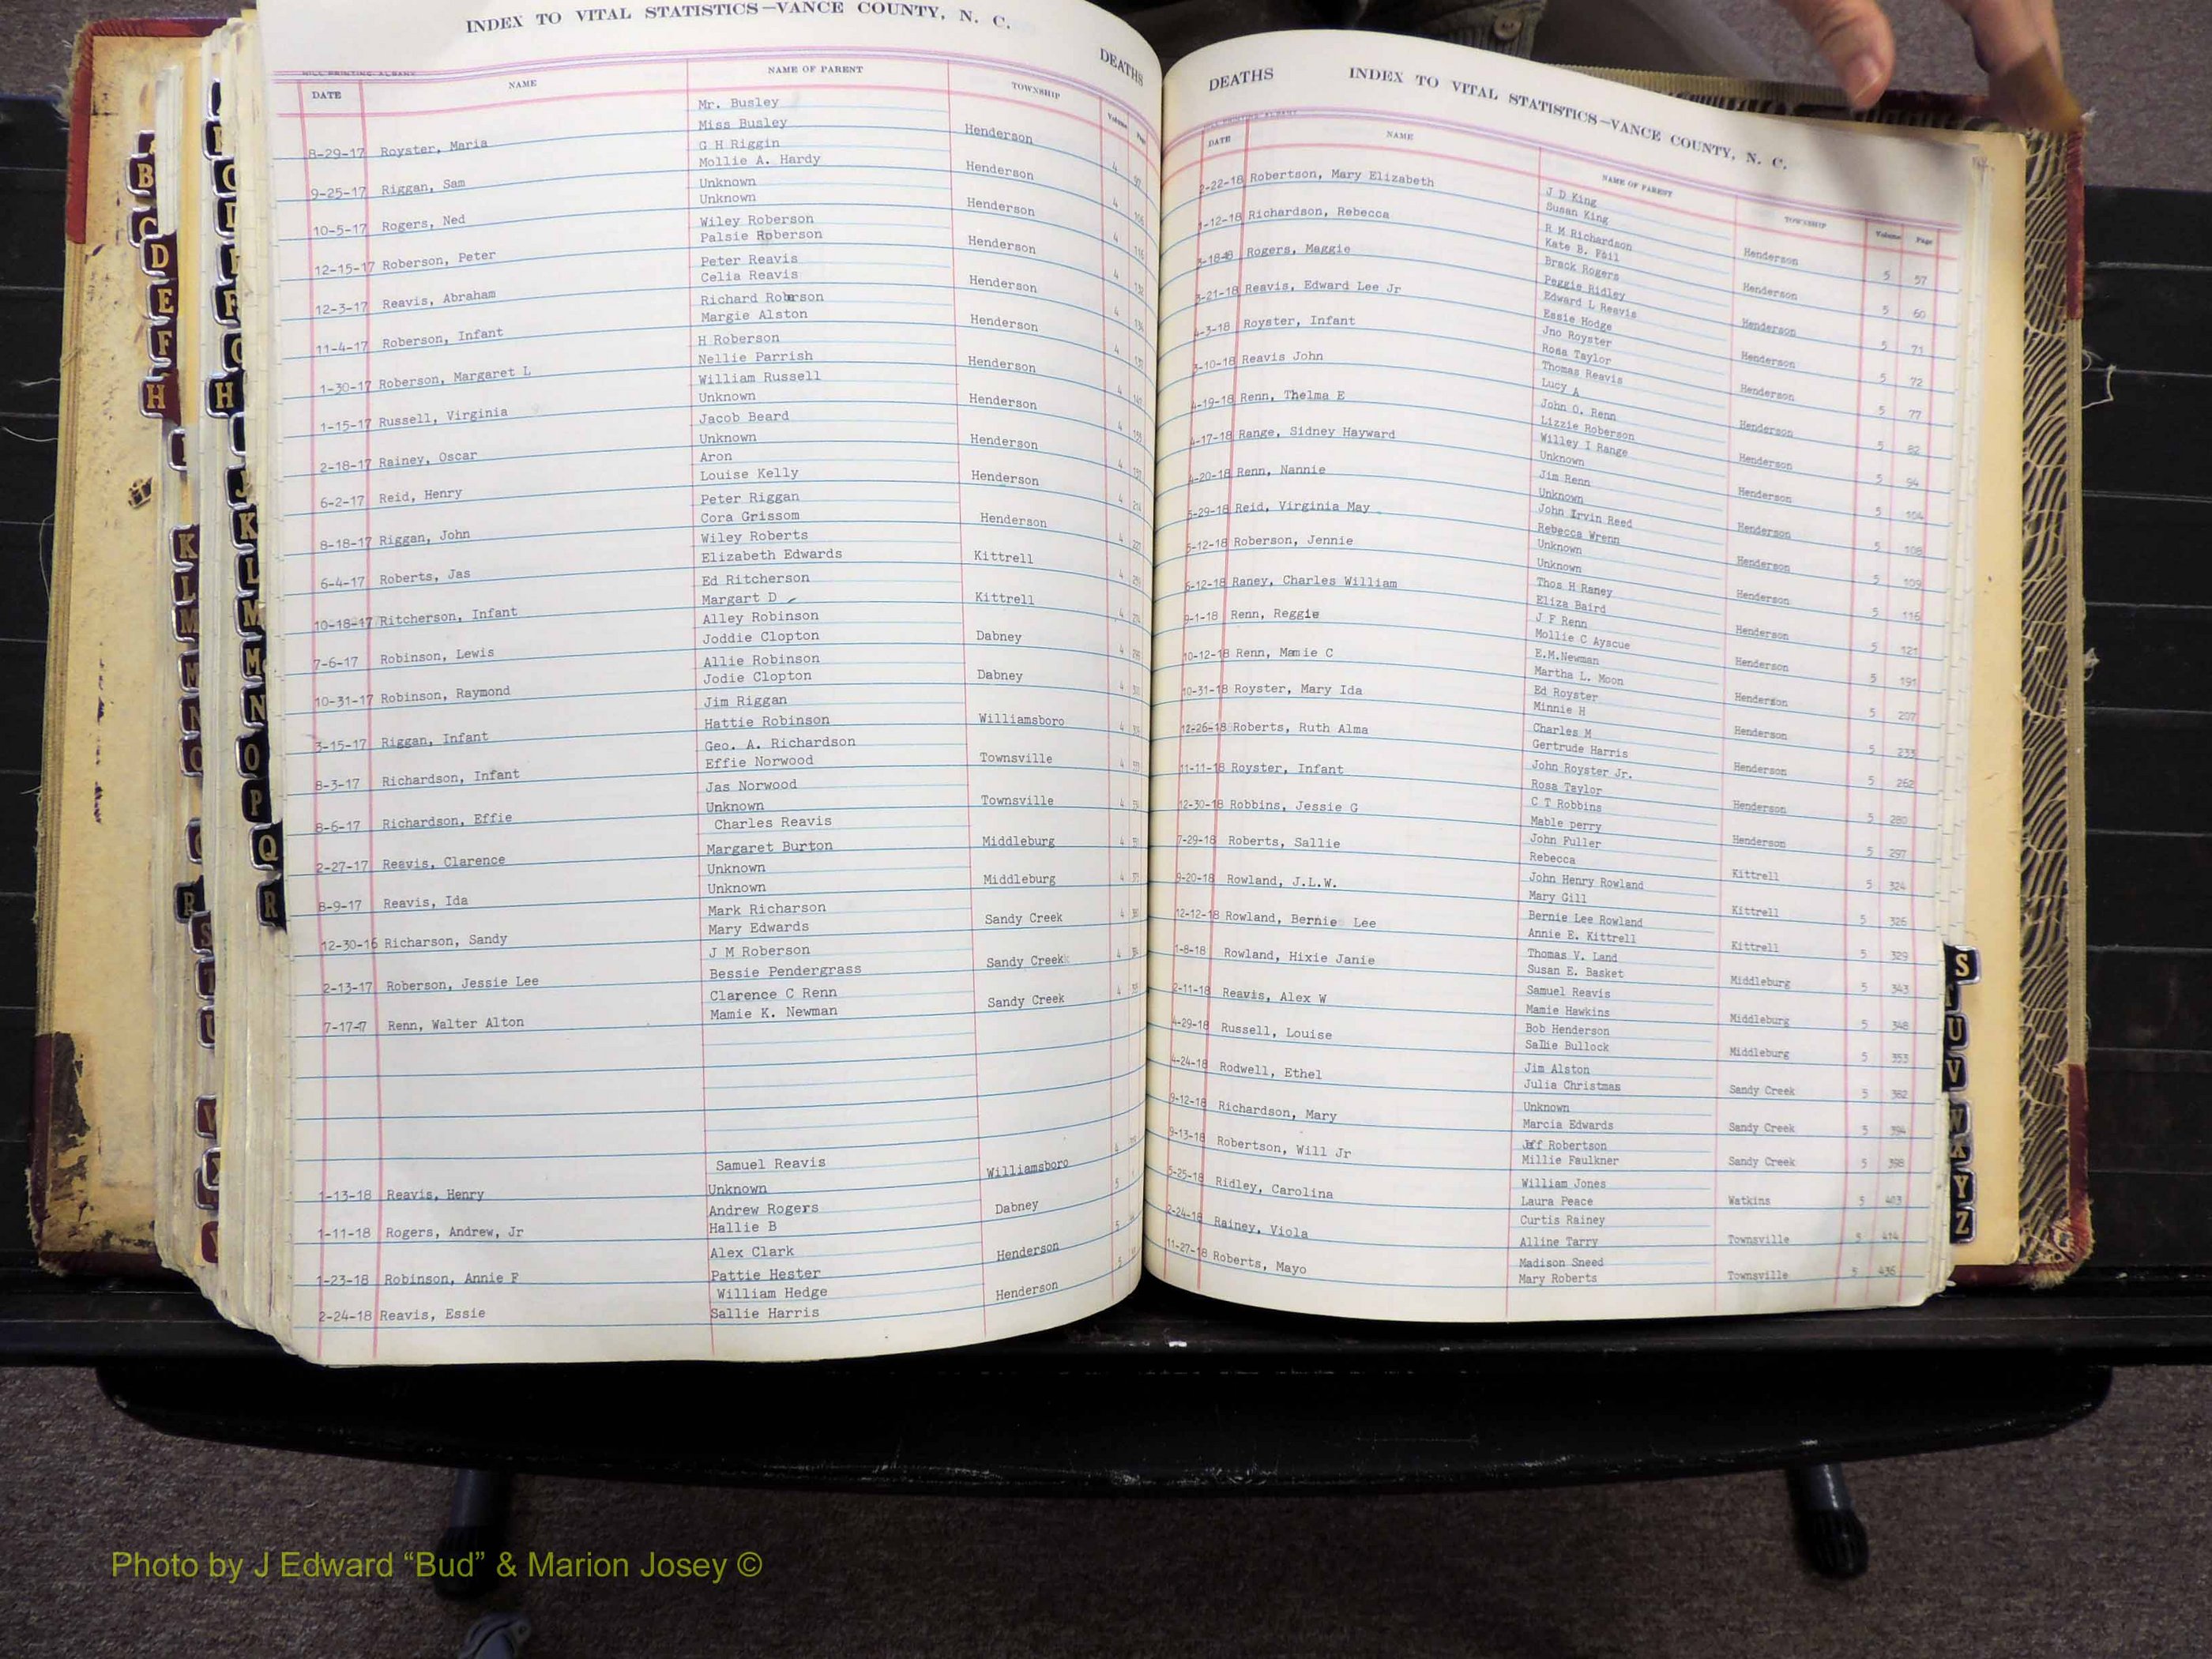 INDEX TO VITAL STATISTICS—VANCE COUNTY, N. C.
DEATHS
DATE NAME NAME OF PARENT TOWNSHIP Volume Page
Mr. Busley
8-29-17 Royster, Maria Miss Busley Henderson 4
G H Riggin
9-25-17 Riggan, Sam Mollie A. Hardy Henderson 4
Unknown
10-5-17 Rogers, Ned Unknown Henderson 4
Wiley Roberson
12-15-17 Roberson, Peter Palsie Roberson Henderson 4
Peter Reavis
12-3-17 Reavis, Abraham Celia Reavis Henderson 4
Richard Roberson
11-4-17 Roberson, Infant Margie Alston Henderson 4
H Roberson
1-30-17 Roberson, Margaret L Nellie Parrish Henderson 4
William Russell
1-15-17 Russell, Virginia Unknown Henderson 4
Jacob Beard
2-18-17 Rainey, Oscar Unknown Henderson 4
Aron
6-2-17 Reid, Henry Louise Kelly Henderson 4
Peter Riggan
8-18-17 Riggan, John Cora Grissom Henderson 4
Wiley Roberts
6-4-17 Roberts, Jas Elizabeth Edwards Kittrell 4
Ed Ritcherson
10-18-17 Ritcherson, Infant Margart D Kittrell 4
Alley Robinson
7-6-17 Robinson, Lewis Joddie Clopton Dabney 4
Allie Robinson
10-31-17 Robinson, Raymond Jodie Clopton Dabney 4
Jim Riggan
3-15-17 Riggan, Infant Hattie Robinson Williamsboro 4
Geo. A. Richardson
8-3-17 Richardson, Infant Effie Norwood Townsville 4
Jas Norwood
8-6-17 Richardson, Effie Unknown Townsville 4
Charles Reavis
2-27-17 Reavis, Clarence Margaret Burton Middleburg 4
Unknown
8-9-17 Reavis, Ida Unknown Middleburg 4
Mark Richarson
12-30-16 Richarson, Sandy Mary Edwards Sandy Creek 4
J M Roberson
2-13-17 Roberson, Jessie Lee Bessie Pendergrass Sandy Creek 4
Clarence C Renn
7-17-17 Renn, Walter Alton Mamie K. Newman Sandy Creek 4
Samuel Reavis
1-13-18 Reavis, Henry Unknown Williamsboro 5
Andrew Rogers
1-11-18 Rogers, Andrew, Jr Hallie B Dabney 5
Alex Clark
1-23-18 Robinson, Annie F Pattie Hester Henderson 5
William Hedge
2-24-18 Reavis, Essie Sallie Harris Henderson
DEATHS INDEX TO VITAL STATISTICS—VANCE COUNTY, N. C.
DATE NAME NAME OF PARENT TOWNSHIP Volume Page
J D King
2-22-18 Robertson, Mary Elizabeth Susan King Henderson 5 57
R M Richardson
1-12-18 Richardson, Rebecca Kate B. Fail Henderson 5 60
Brack Rogers
3-18-18 Rogers, Maggie Peggie Ridley Henderson 5 71
Edward L Reavis
3-21-18 Reavis, Edward Lee Jr Essie Hodge Henderson 5 72
Jno Royster
4-3-18 Royster, Infant Rosa Taylor Henderson 5 77
Thomas Reavis
3-10-18 Reavis John Lucy A Henderson 5 82
John O. Renn
4-19-18 Renn, Thelma E Lizzie Roberson Henderson 5 94
Willey I Range
4-17-18 Range, Sidney Hayward Unknown Henderson 5 104
Jim Renn
4-20-18 Renn, Nannie Unknown Henderson 5 108
John Irvin Reed
5-29-18 Reid, Virginia May Rebecca Wrenn Henderson 5 109
Unknown
5-12-18 Roberson, Jennie Unknown Henderson 5 116
Thos H Raney
6-12-18 Raney, Charles William Eliza Baird Henderson 5 121
J F Renn
9-1-18 Renn, Reggie Mollie C Ayscue Henderson 5 191
E.M.Newman
10-12-18 Renn, Mamie C Martha L. Moon Henderson 5 207
Ed Royster
10-31-18 Royster, Mary Ida Minnie H Henderson 5 233
Charles M
12-26-18 Roberts, Ruth Alma Gertrude Harris Henderson 5 262
John Royster Jr.
11-11-18 Royster, Infant Rosa Taylor Henderson 5 280
C T Robbins
12-30-18 Robbins, Jessie G Mable perry Henderson 5 297
John Fuller
7-29-18 Roberts, Sallie Rebecca Kittrell 5 324
John Henry Rowland
9-20-18 Rowland, J.L.W. Mary Gill Kittrell 5 326
Bernie Lee Rowland
12-12-18 Rowland, Bernie Lee Annie E. Kittrell Kittrell 5 329
Thomas V. Land
1-8-18 Rowland, Hixie Janie Susan E. Basket Middleburg 5 343
Samuel Reavis
2-11-18 Reavis, Alex W Mamie Hawkins Middleburg 5 348
Bob Henderson
4-29-18 Russell, Louise Sallie Bullock Middleburg 5 353
Jim Alston
4-24-18 Rodwell, Ethel Julia Christmas Sandy Creek 5 382
Unknown
9-12-18 Richardson, Mary Marcia Edwards Sandy Creek 5 394
Jeff Robertson
9-13-18 Robertson, Will Jr Millie Faulkner Sandy Creek 5 398
William Jones
5-25-18 Ridley, Carolina Laura Peace Watkins 5 403
Curtis Rainey
2-24-18 Rainey, Viola Alline Tarry Townsville 5 414
Madison Sneed
11-27-18 Roberts, Mayo Mary Roberts Townsville 5 436
B
C
D
E
F
H
K
L
M
N
O
P
Q
R
S
U
V
Y
Z
Photo by J Edward “Bud” & Marion Josey ©